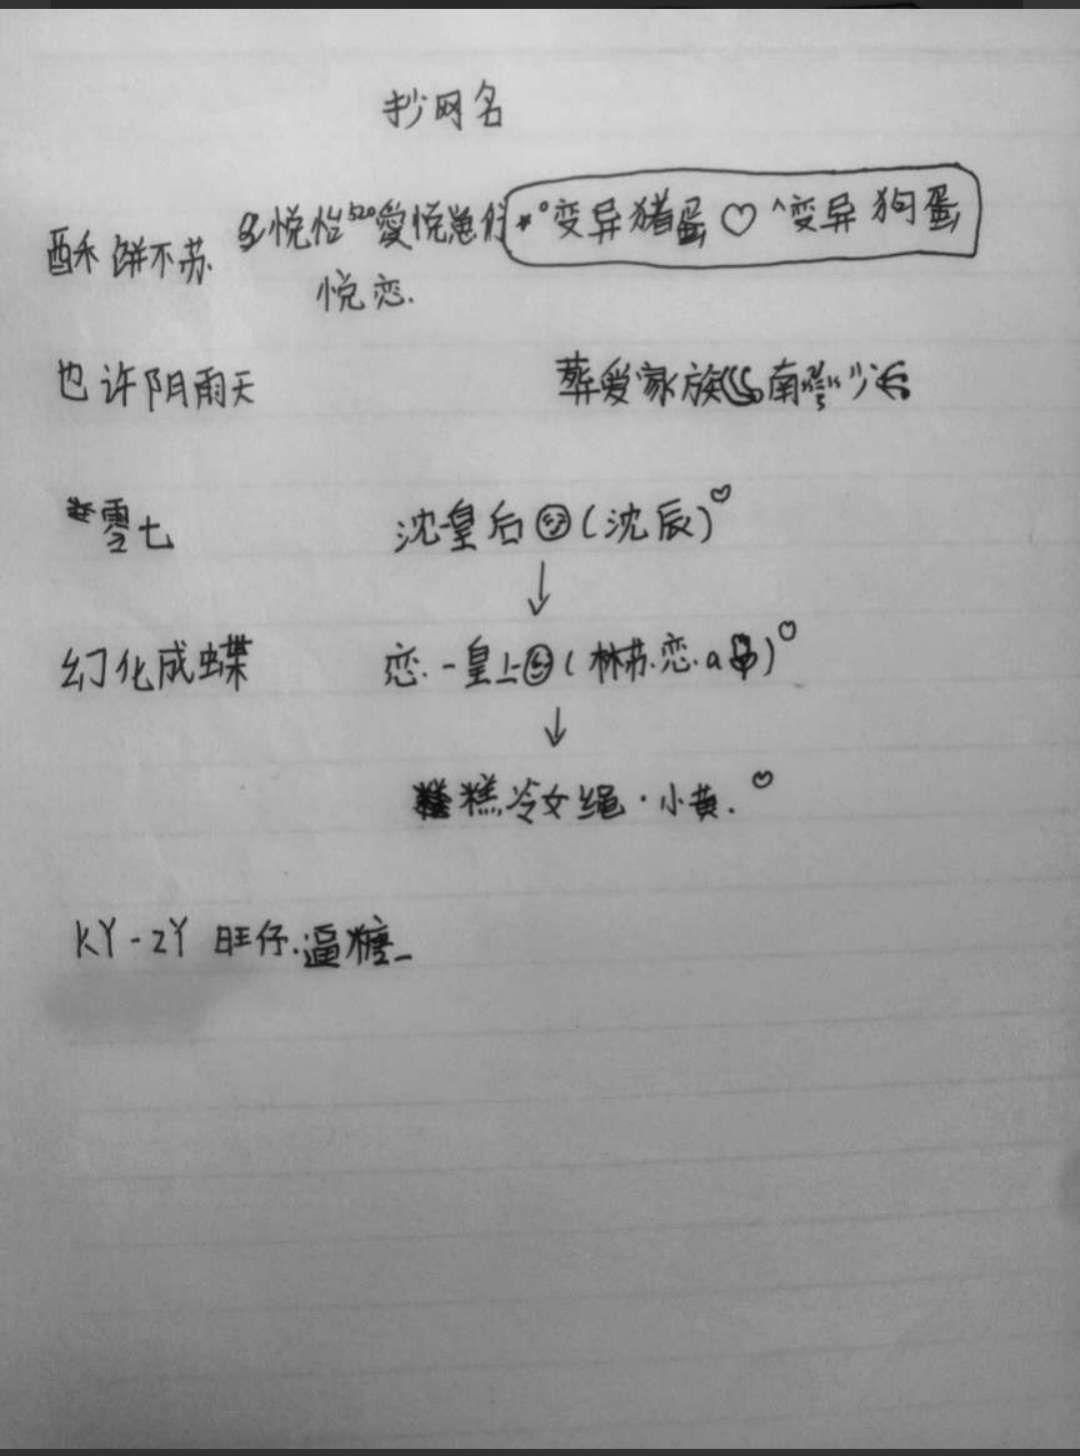 抄网名
酥饼不苏. 悦怡520愛悦崽们 *°变异猪蛋♡^变异狗蛋
悦恋.
也许阴雨天 葬爱家族 南 少
零七 沈皇后(沈辰)♡
↓
幻化成蝶 恋.-皇上(林苏.恋.a)♡
↓
糕冷女绳·小黄.♡
KY-ZY 旺仔.逼糖_